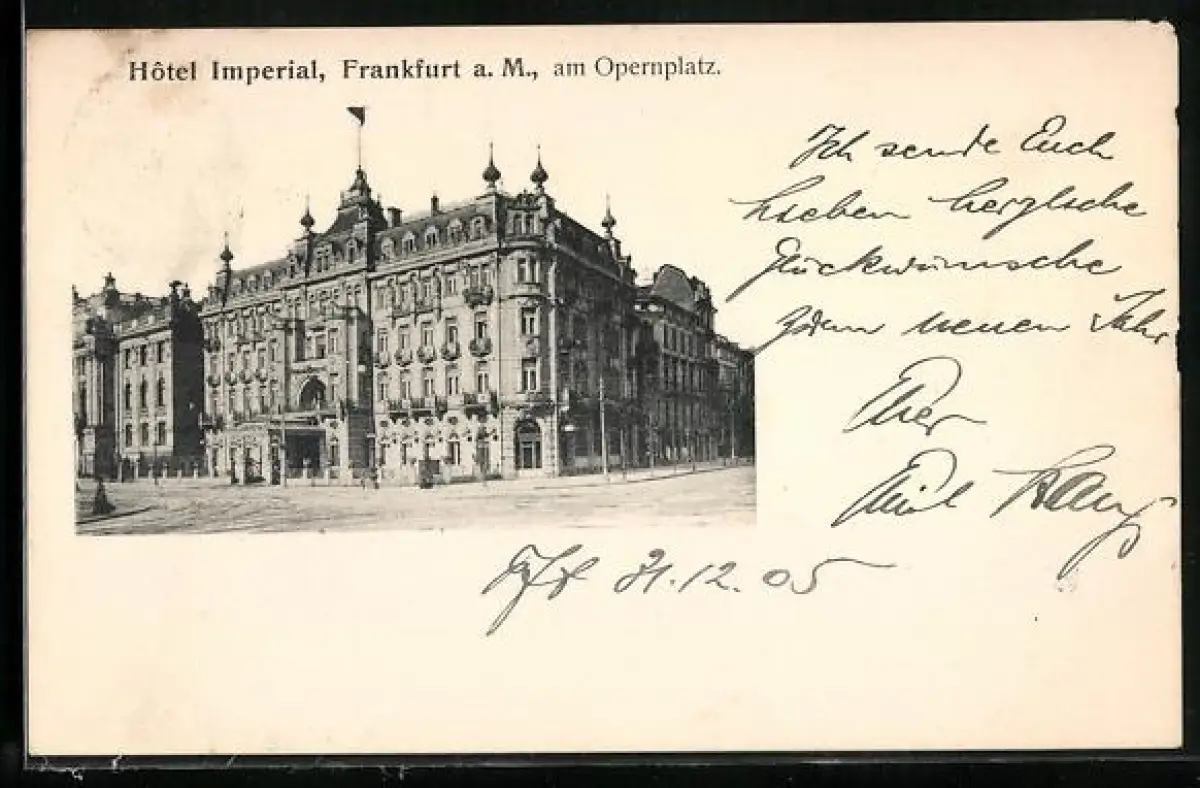 Hôtel Imperial, Frankfurt a. M., am Opernplatz.
Ich sende Euch
Lieben herzliche
Glückwünsche
zum neuen Jahr
Euer
Emil
Ffт 31.12.05